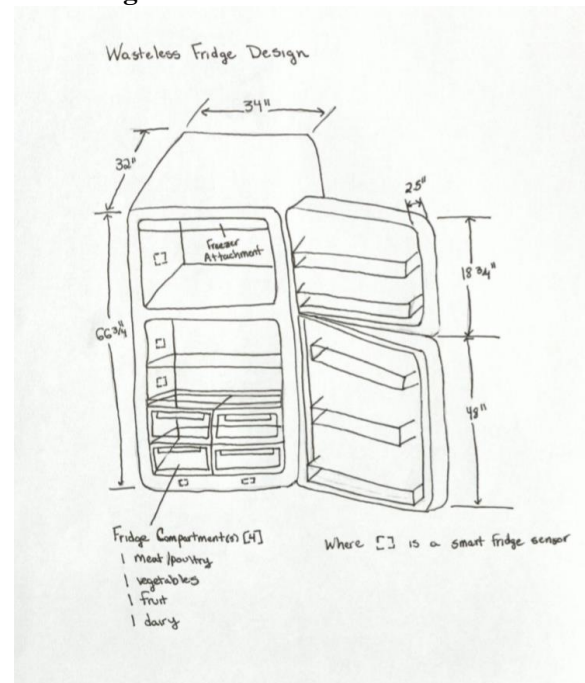 Wasteless Fridge Design
34"
32"
25"
Freezer
Attachment
18 3/4"
66 3/4"
48"
Fridge Compartment(s) [4]
1 meat/poultry
1 vegetables
1 fruit
1 dairy
Where [] is a smart fridge sensor